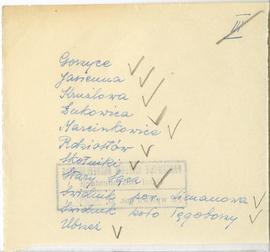 IV
Gorzyce
Jasienna
Krużlowa
Łukowica
Marcinkowice
Rdziostów
Skotniki
Stary Sącz
Świdnik pow. Limanowa
Świdnik koło Tęgoborzy
Ubiad